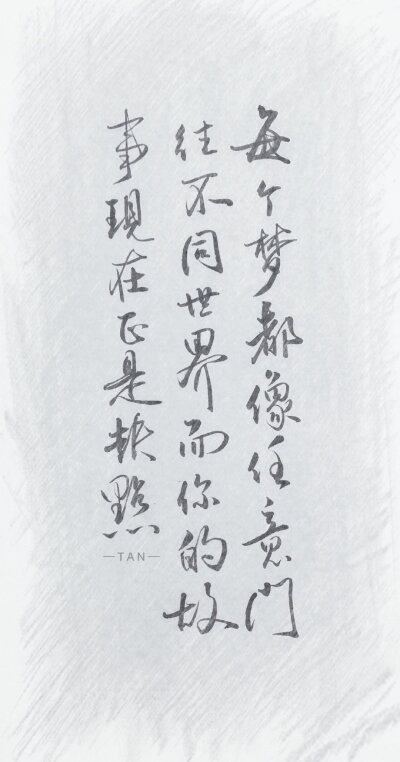 每个梦都像任意門
往不同世界而你的故
事現在正是起點
—TAN—